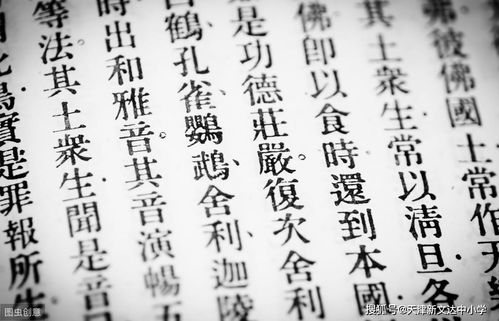 弗彼佛國土常作天
其土衆生常以清旦各
佛即以食時還到本國
是功德莊嚴。復次舍利
白鶴孔雀鸚鵡、舍利、迦陵
時出和雅音。其音演暢五
等法其土衆生聞是音
此鳥實是罪報所生
图虫创意
搜狐号@天津新文达中小学